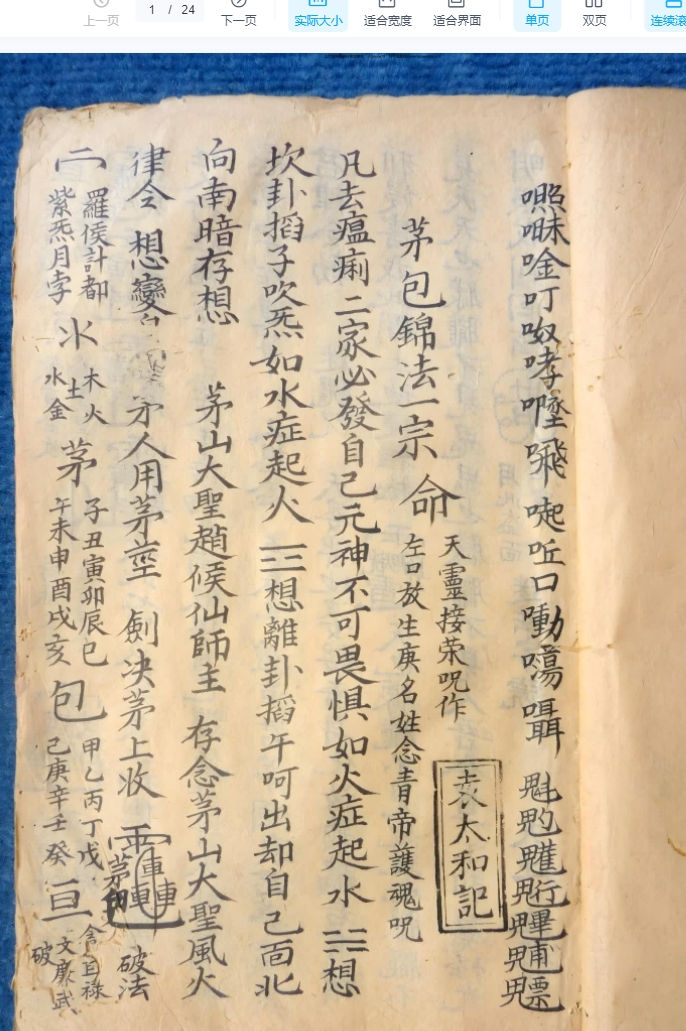 上一页
1 / 24
下一页
实际大小
适合宽度
适合界面
单页
双页
连续滚
嘿㖡唫叮呶哮㘄 口 囁
魁魡 魓
茅包錦法一宗 命 天靈接荣呪作
左口放生庚名姓念青帝護魂呪
袁太和記
凡去瘟痢二家必發自己元神不可畏惧如火症起水 ☵ 想
坎卦搯子吹炁如水症起火 ☲ 想離卦搯午呵出却自己面北
向南暗存想 茅山大聖趙候仙師主 存念茅山大聖風火
律令 想變 茅人用茅莖 劍决茅上收 破法
二 羅侯計都
紫炁月孛
氺 木火
土
水金
茅 子丑寅卯辰巳
午未申酉戌亥
包 甲乙丙丁戊
己庚辛壬癸
亘 貪巨祿
文廉武
破